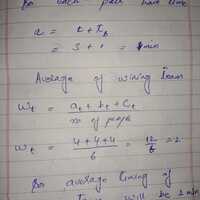 for each pack have time
a = t + t_b
= 3 + 1 = 4 min
Average of wining Team
W_t = a_t + b_t + C_t / no of people
W_t = 4 + 4 + 4 / 6 = 12 / 6 = 2
for average timing of
Team will be 2 min